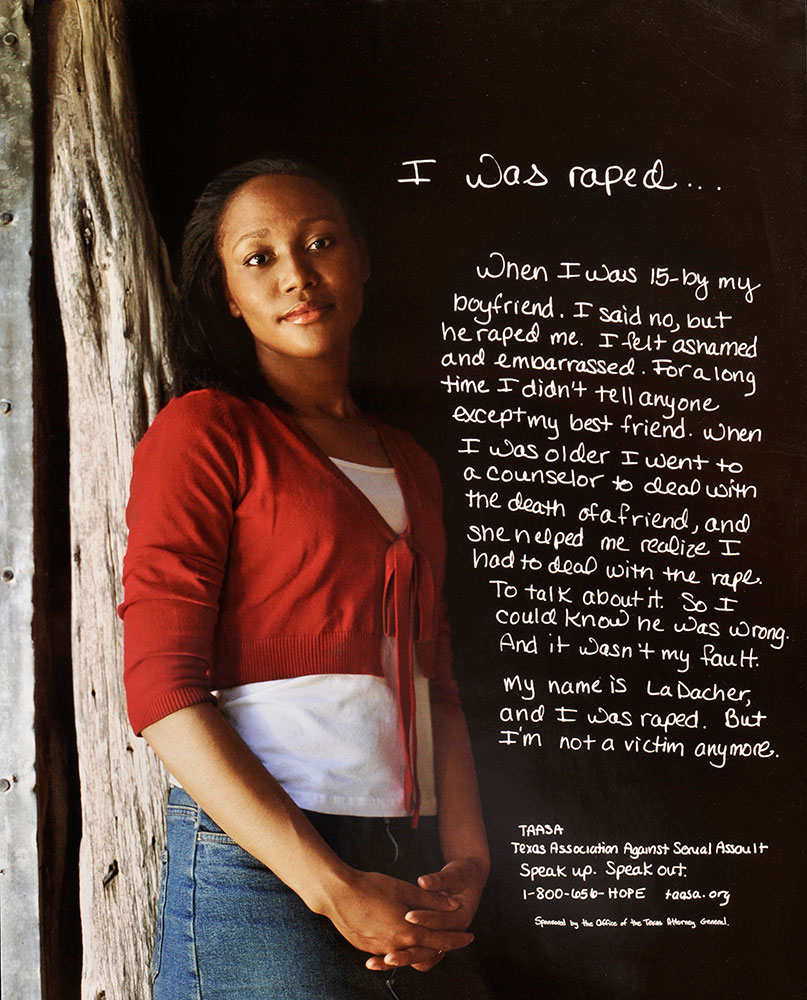 I was raped...
When I was 15-by my
boyfriend. I said no, but
he raped me. I felt ashamed
and embarrassed. For a long
time I didn't tell anyone
except my best friend. When
I was older I went to
a counselor to deal with
the death of a friend, and
she helped me realize I
had to deal with the rape.
To talk about it. So I
could know he was wrong.
And it wasn't my fault.
My name is LaDacher,
and I was raped. But
I'm not a victim anymore.
TAASA
Texas Association Against Sexual Assault
Speak up. Speak out.
1-800-656-HOPE taasa.org
Sponsored by the Office of the Texas Attorney General.